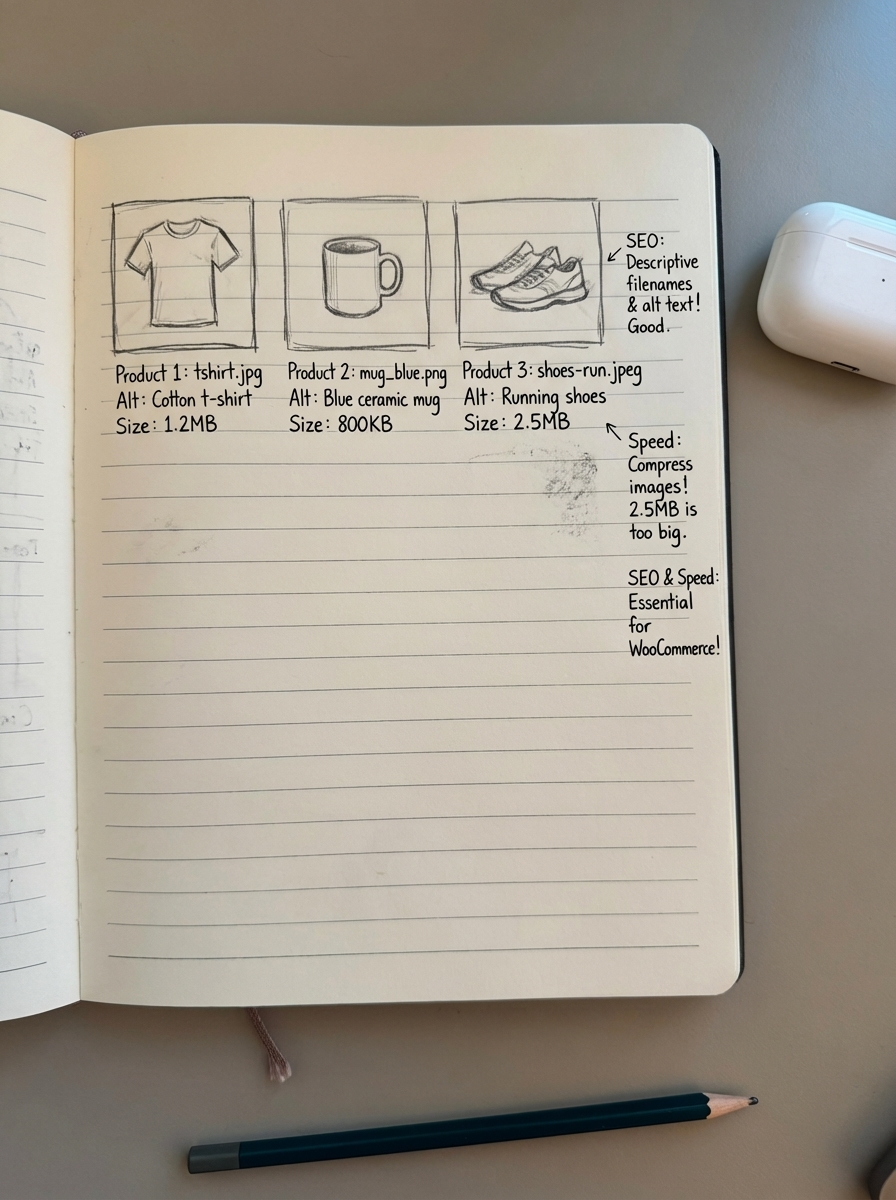 Product 1: tshirt.jpg
Alt: Cotton t-shirt
Size: 1.2MB
Product 2: mug_blue.png
Alt: Blue ceramic mug
Size: 800KB
Product 3: shoes-run.jpeg
Alt: Running shoes
Size: 2.5MB
SEO:
Descriptive
filenames
& alt text!
Good.
Speed:
Compress
images!
2.5MB is
too big.
SEO & Speed:
Essential
for
WooCommerce!